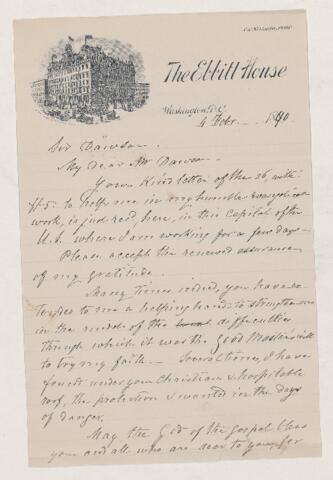 The Ebbitt House
Washington, D.C.
4 Febr. 1890
Sir Dawson.
My dear Mr Dawson
Your Kind letter of the 26, with
$5: to help me in my humble evangelical
work, is just recd, here, in this capital of the
U.S. where I am working for a few days—
Please accept the renewed assurance
of my gratitude.
Many times indeed, you have ex-
tended to me a helping hand to strengthen me
in the midst of the difficulties
through which it was the good Master's will
to try my faith — Several times, I have
found under your Christian & hospitable
roof, the protection I wanted in the days
of danger.
May the God of the gospel bless
you and all who are dear to you for